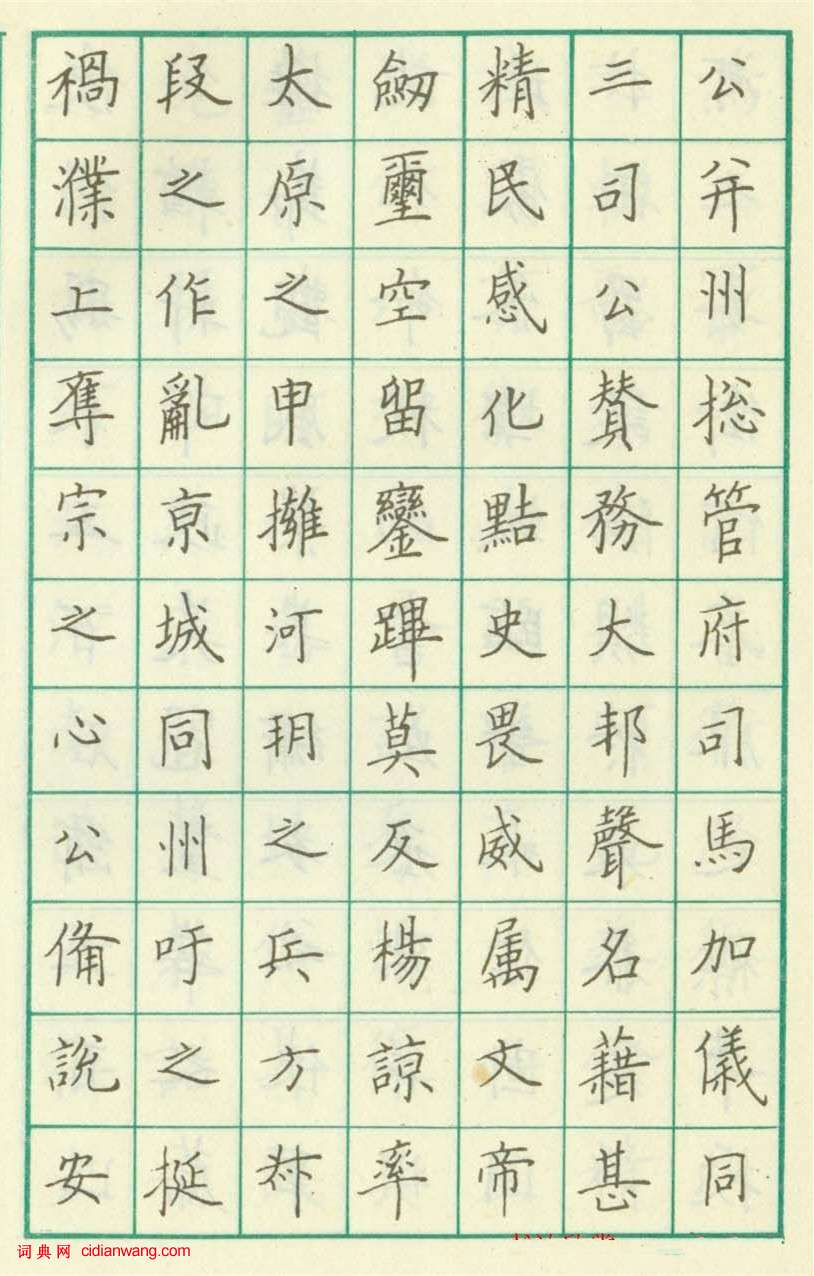 公并州揔管府司馬加儀同
三司公贊務大邦聲名藉甚
精民感化黠史畏威属文帝
劒璽空留鑾蹕莫反楊諒率
太原之甲擁河朔之兵方
段之作亂京城同州吁之挺
禍濮上奪宗之心公備說安
词典网 cidianwang.com